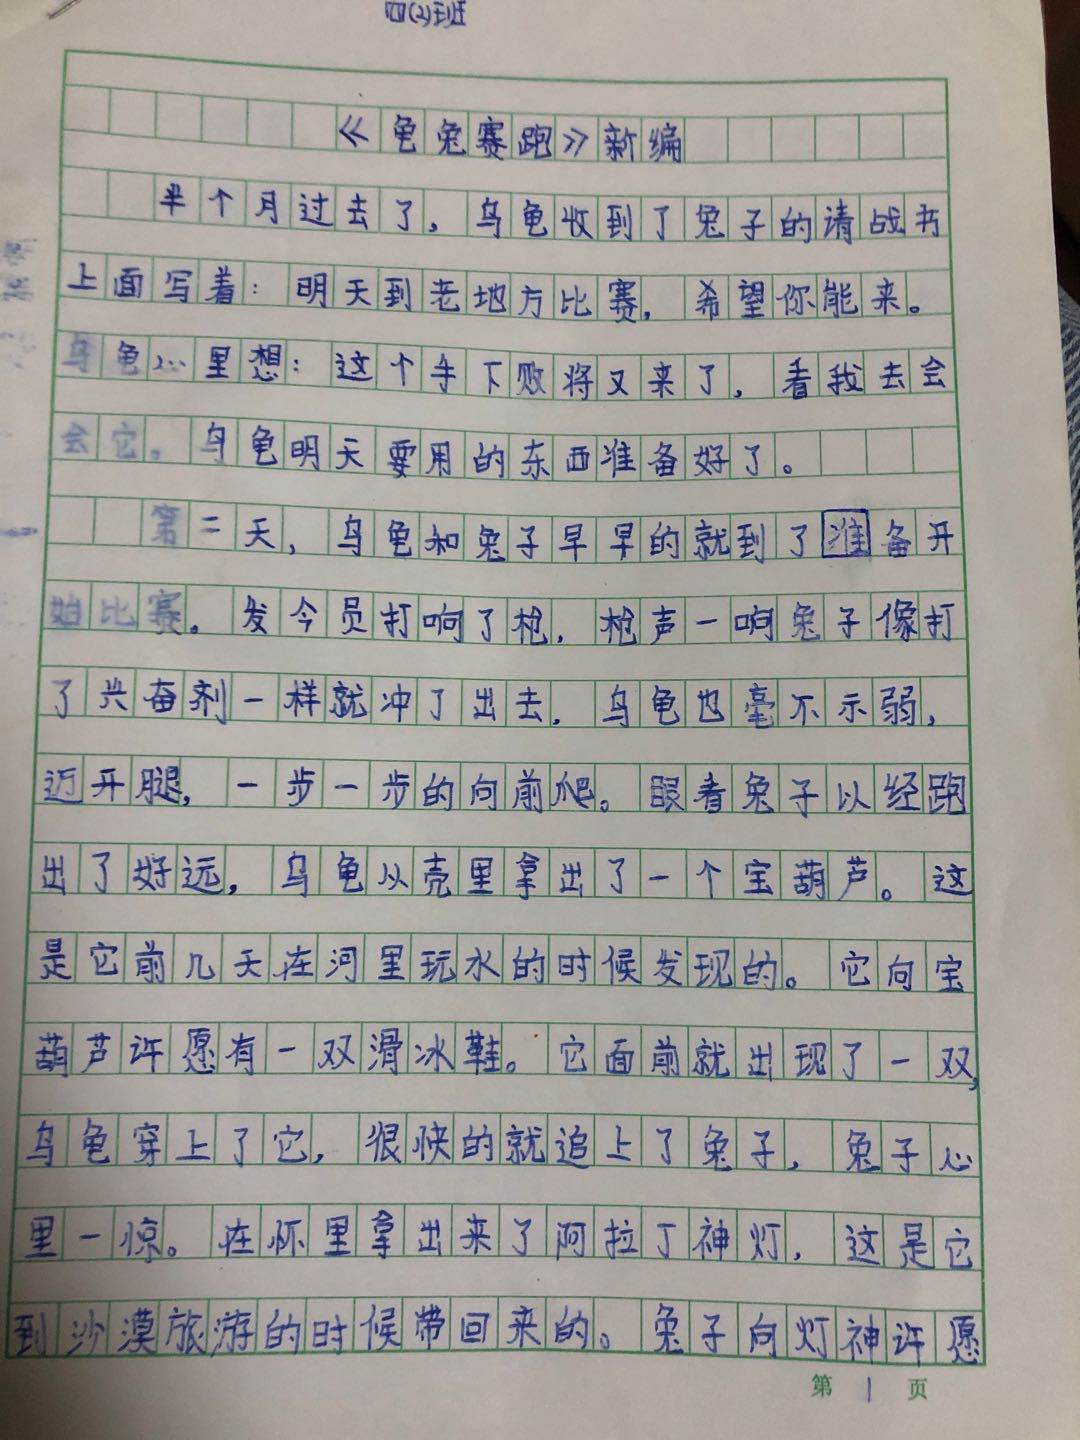 四(2)班
《龟兔赛跑》新编
半个月过去了，乌龟收到了兔子的请战书
上面写着：明天到老地方比赛，希望你能来。
乌龟心里想：这个手下败将又来了，看我去会
会它。乌龟明天要用的东西准备好了。
第二天，乌龟和兔子早早的就到了准备开
始比赛。发令员打响了枪，枪声一响兔子像打
了兴奋剂一样就冲了出去，乌龟也毫不示弱，
迈开腿，一步一步的向前爬。眼看兔子以经跑
出了好远，乌龟从壳里拿出了一个宝葫芦。这
是它前几天在河里玩水的时候发现的。它向宝
葫芦许愿有一双滑冰鞋。它面前就出现了一双，
乌龟穿上了它，很快的就追上了兔子，兔子心
里一惊。在怀里拿出来了阿拉丁神灯，这是它
到沙漠旅游的时候带回来的。兔子向灯神许愿
第1页